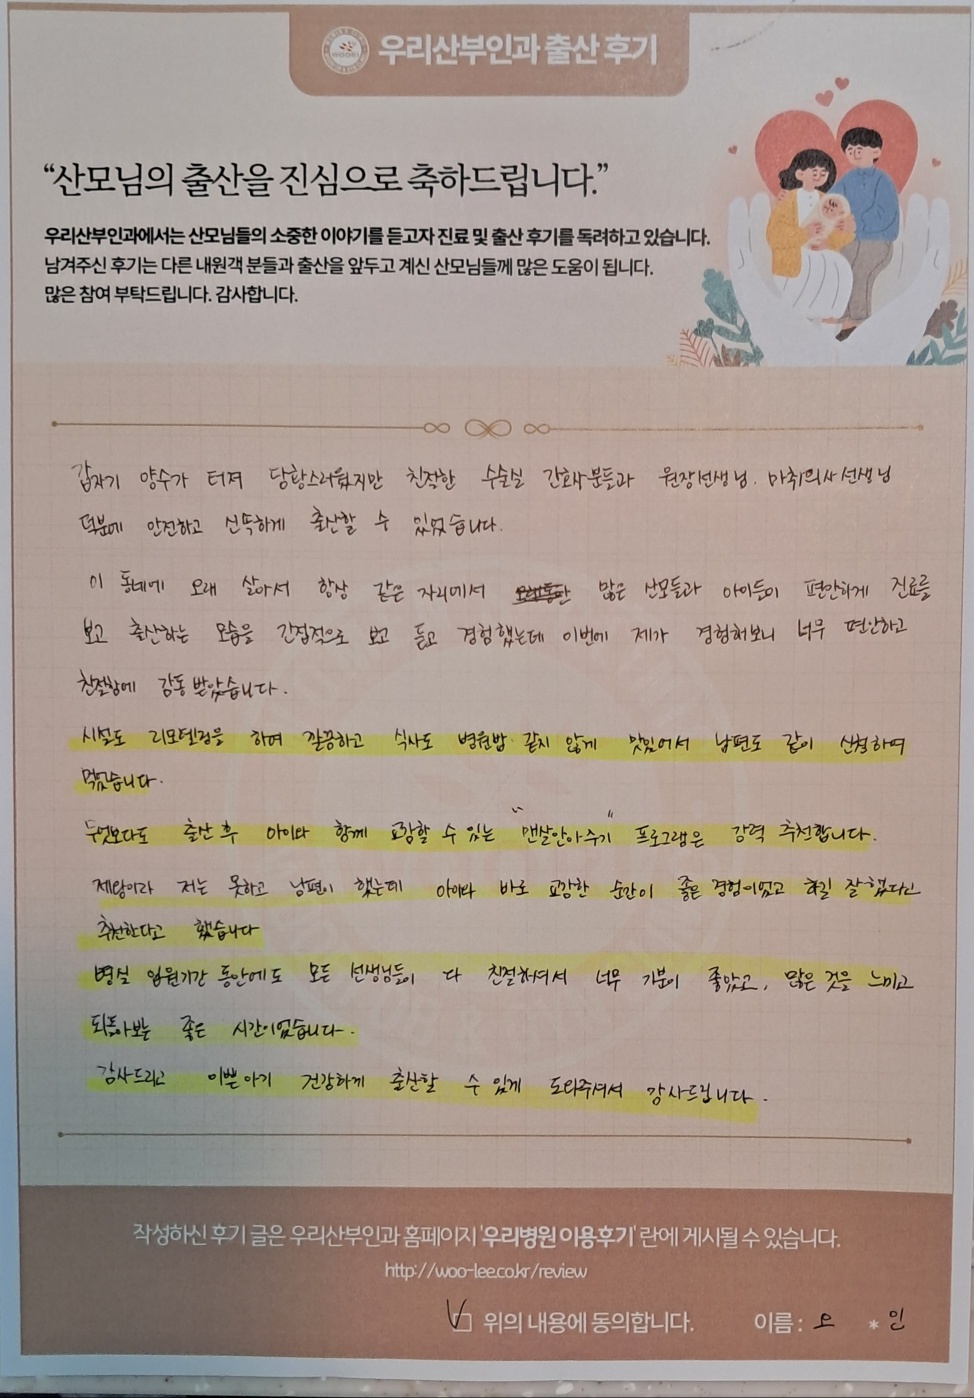 우리산부인과 출산 후기
“산모님의 출산을 진심으로 축하드립니다.”
우리산부인과에서는 산모님들의 소중한 이야기를 듣고자 진료 및 출산 후기를 독려하고 있습니다.
남겨주신 후기는 다른 내원객 분들과 출산을 앞두고 계신 산모님들께 많은 도움이 됩니다.
많은 참여 부탁드립니다. 감사합니다.
갑자기 양수가 터져 당황스러웠지만 친절한 수술실 간호사분들과 원장선생님. 마취의사선생님
덕분에 안전하고 신속하게 출산할 수 있었습니다.
이 동네에 오래 살아서 항상 같은 자리에서 많은 산모들과 아이들이 편안하게 진료를
보고 출산하는 모습을 간접적으로 보고 듣고 경험했는데 이번에 제가 경험해보니 너무 편안하고
친절함에 감동 받았습니다.
시설도 리모델링을 하여 깔끔하고 식사도 병원밥 같지 않게 맛있어서 남편도 같이 신청하여
먹었습니다.
무엇보다도 출산 후 아이와 함께 교감할 수 있는 "맨살안아주기" 프로그램은 강력 추천합니다.
제왕이라 저는 못하고 남편이 했는데 아이와 바로 교감한 순간이 좋은 경험이었고 하길 잘했다고
추천한다고 했습니다
병실 입원기간 동안에도 모든 선생님들이 다 친절하셔서 너무 기분이 좋았고, 많은 것을 느끼고
되돌아보는 좋은 시간이었습니다.
감사드리고 이쁜아기 건강하게 출산할 수 있게 도와주셔서 감사드립니다.
작성하신 후기 글은 우리산부인과 홈페이지 '우리병원 이용후기' 란에 게시될 수 있습니다.
http://woo-lee.co.kr/review
위의 내용에 동의합니다. 이름 : 오 * 인